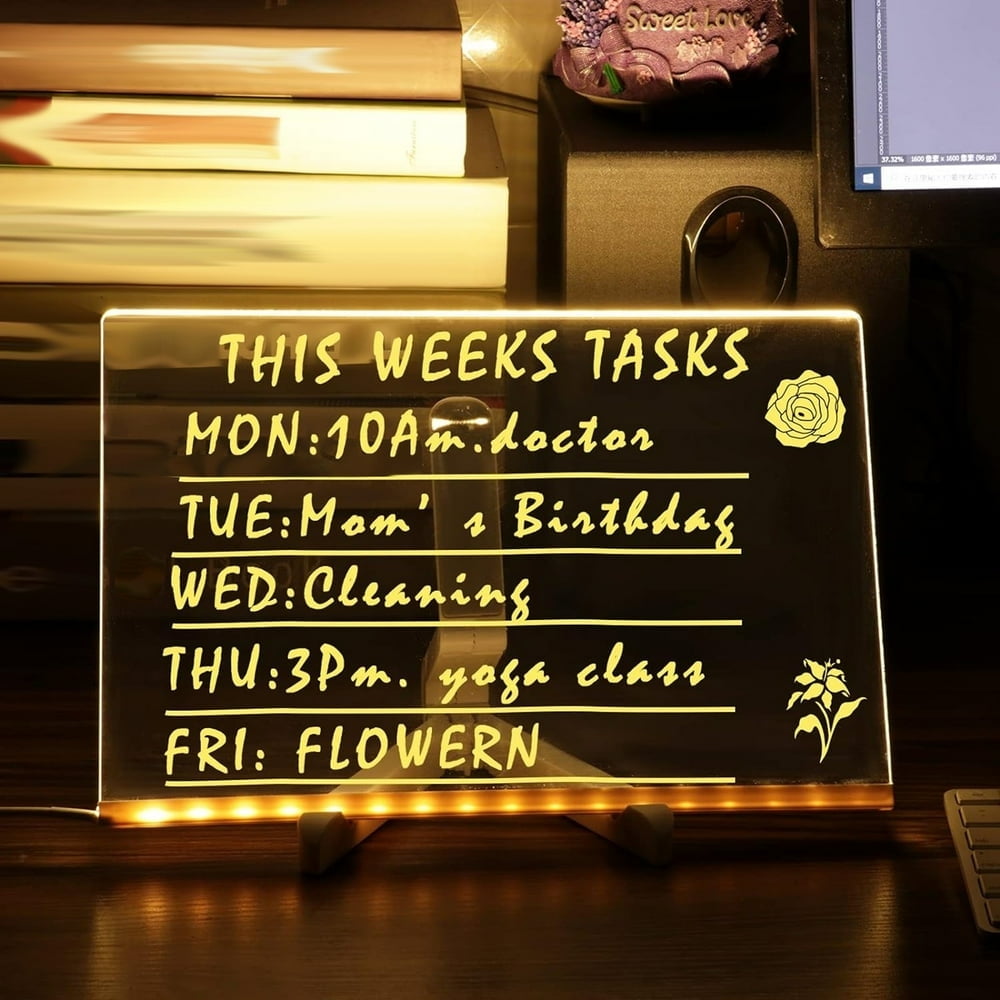 Sweet Love
37.32%
1600 像素 x 1600 像素 (96 ppi)
THIS WEEKS TASKS
MON:10Am.doctor
TUE:Mom's Birthday
WED:Cleaning
THU:3Pm. yoga class
FRI: FLOWERN